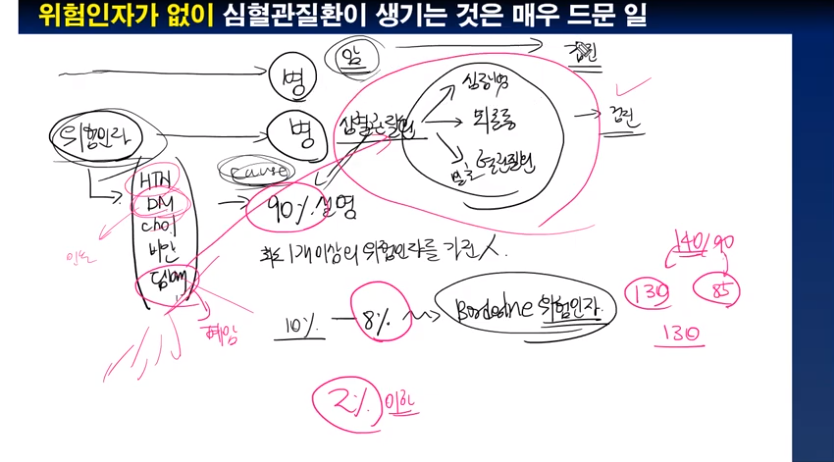 위험인자가 없이 심혈관질환이 생기는 것은 매우 드문 일
병 암
위험인자 병 심혈관질환
심장병
뇌졸중
말초혈관질환
검진
HTN
DM
chol
비만
담배
cause
90% 설명
최소 1개 이상의 위험인자를 가진 人.
10% - 8% Borderline 위험인자.
2% 이하
폐암
140/90
130 85
130